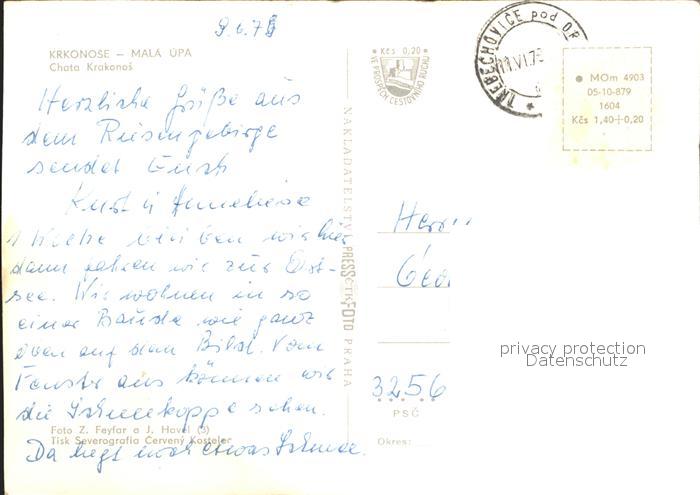 9.6.78
KRKONOŠE – MALÁ ÚPA
Chata Krakonoš
Herzliche Grüße aus
dem Riesengebirge
sendet Euch
Kurt u Anneliese
1 Woche bleiben wir hier
dann fahren wir zur Ost-
see. Wir wohnen in so
einer Baude wie ganz
oben auf dem Bild. Vom
Fenster aus können wir
die Schneekoppe sehen.
Foto Z. Feyfar a J. Havel (3)
Tisk Severografia Červený Kostelec
Da liegt noch etwas Schnee.
NAKLADATELSTVÍ PRESSFOTO PRAHA
ČTK
Kčs 0,20
VE PROSPĚCH CESTOVNÍHO RUCHU
TŘEBECHOVICE pod OR
11.VI.7
MOm 4903
05-10-879
1604
Kčs 1,40+0,20
Herr
Geo
privacy protection
Datenschutz
3256
PSČ
Okres: